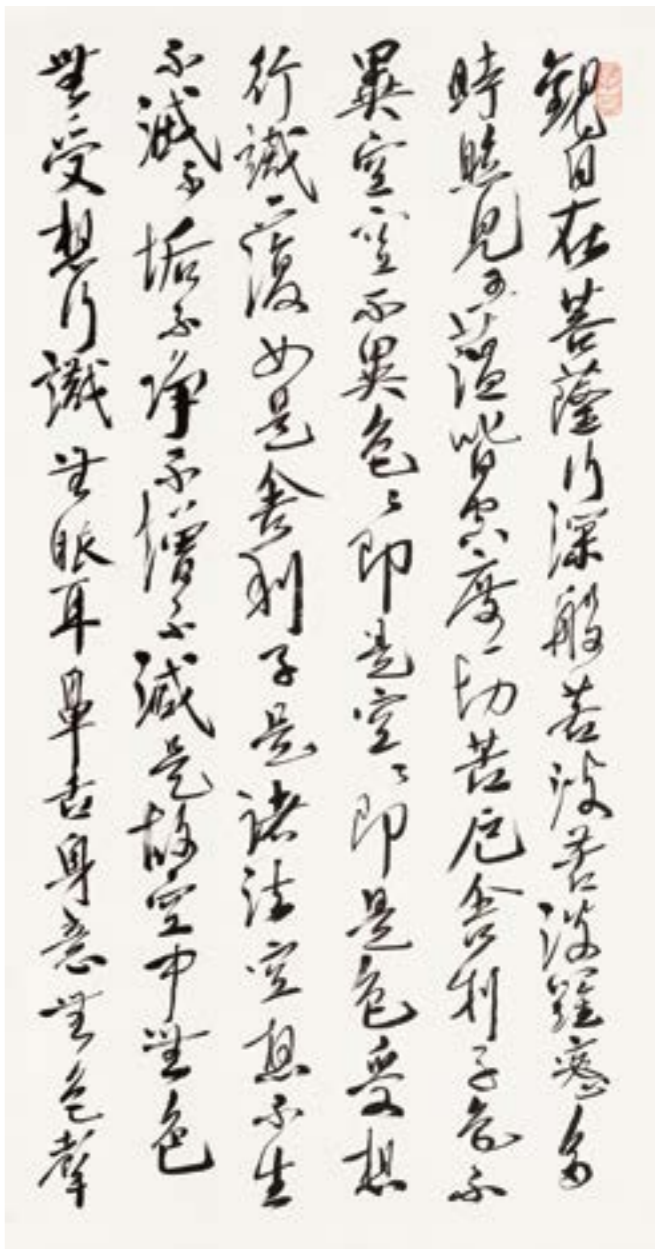 觀自在菩薩行深般若波若波羅蜜多
時照見五蘊皆空度一切苦厄舍利子色不
異空空不異色〻即是空〻即是色受想
行識亦復如是舍利子是諸法空想不生
不滅不垢不淨不增不減是故空中無色
無受想行識無眼耳鼻舌身意無色聲